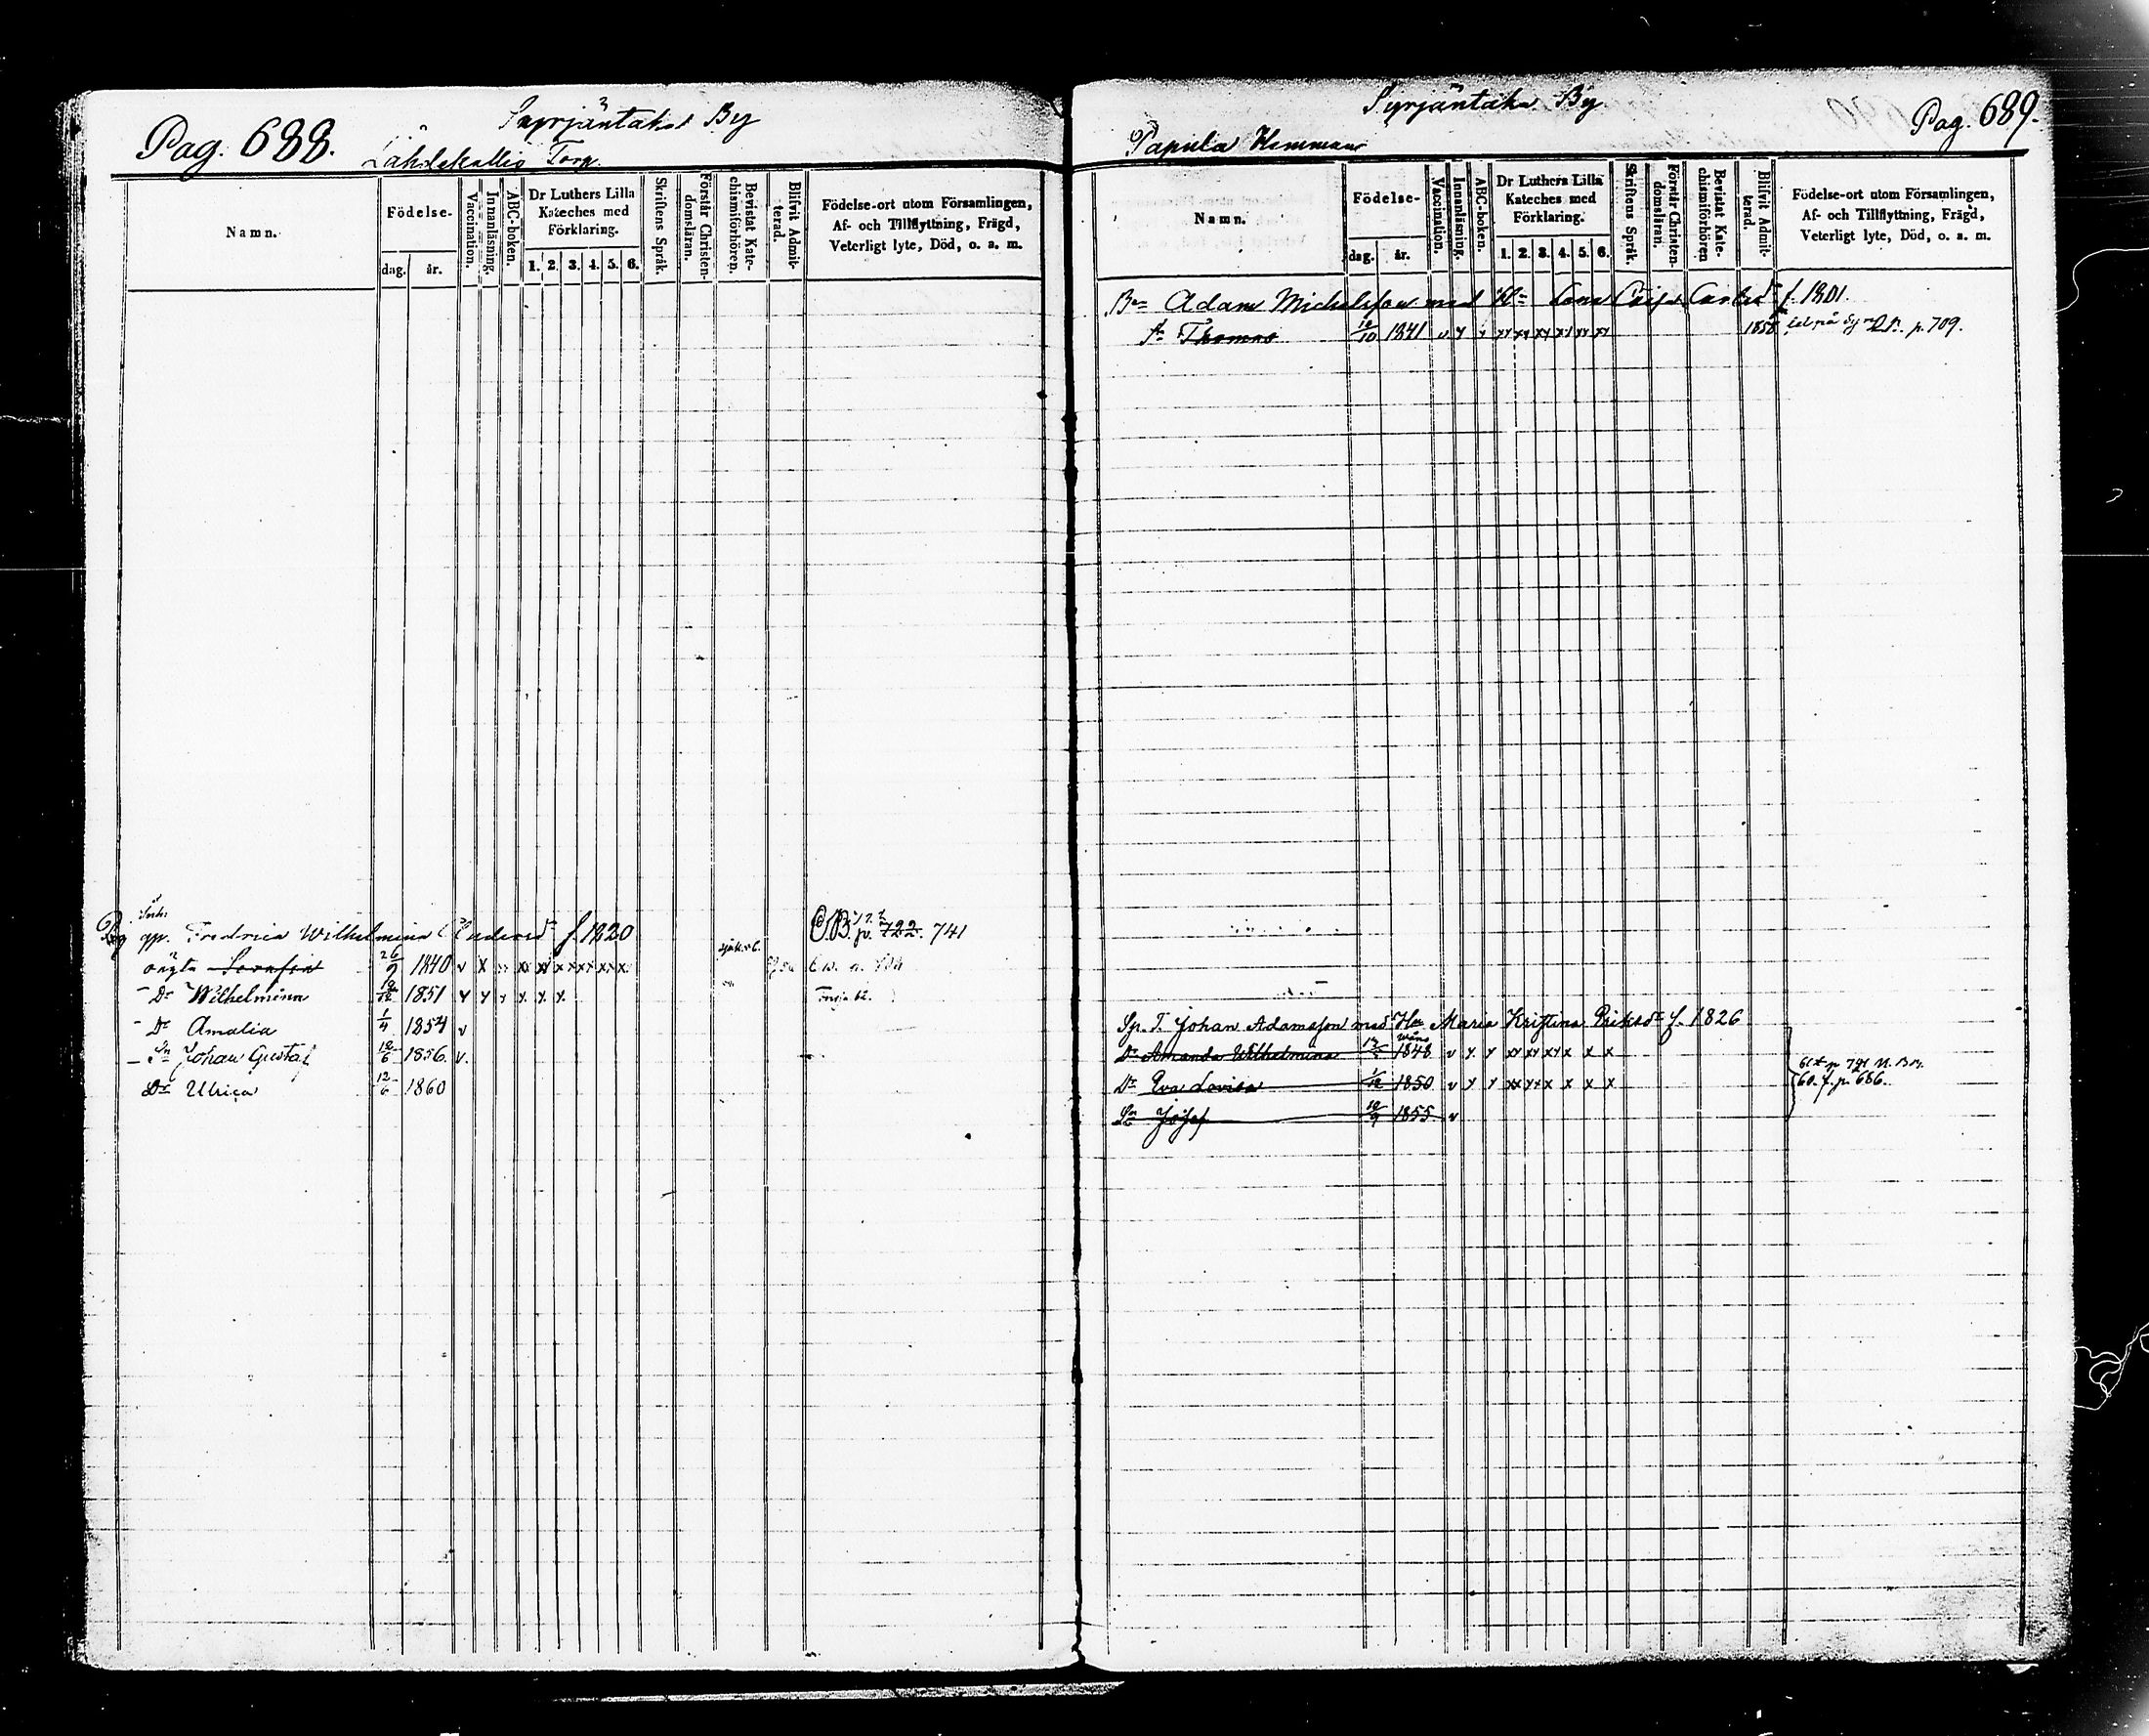 Pag. 688.
Syrjäntaka By
Lähdekallio Torp.
Namn.
Födelse-
dag. år.
Vaccination.
Innanläsning.
ABC-boken.
Dr Luthers Lilla
Kateches med
Förklaring.
1. 2. 3. 4. 5. 6.
Skriftens Språk.
Förstår Christen-
domsläran.
Bevistat Kate-
chismiförhören.
Blifvit Admit-
terad.
Födelse-ort utom Församlingen,
Af- och Tillflyttning, Frägd,
Veterligt lyte, Död, o. s. m.
Fredrica Wilhelmina f. 1820 C.B. p. 722. 741
oägta Serafin 26/9 1840 v x x x x x x x x
Dr Wilhelmina 1851 v v v x x x
Dr Amalia 1/4 1854 v
Sn Johan Gustaf 18/6 1856. v.
Dr Ulrica 12/6 1860
Pag. 689.
Syrjäntaka By
Papula Hemman
Namn.
Födelse-
dag. år.
Vaccination.
Innanläsning.
ABC-boken.
Dr Luthers Lilla
Kateches med
Förklaring.
1. 2. 3. 4. 5. 6.
Skriftens Språk.
Förstår Christen-
domsläran.
Bevistat Kate-
chismiförhören
Blifvit Admit-
terad.
Födelse-ort utom Församlingen,
Af- och Tillflyttning, Frägd,
Veterligt lyte, Död, o. s. m.
Adam Michelsson med H= Lena Caisa Carlsdr f. 1801.
Thomas 10/10 1841 v y y xy xy xy xy xy xy 1858 p. 709.
Sp. T. Johan Adamsson med Hu Maria Kristina Eriksdr f. 1826
Dr Amanda Wilhelmina 1848 v y y xy xy xy x x x
Dr Eva Lovisa 1/12 1850 v y y xx y x x x x x
60. f. p. 686.
Sn Josef 10/9 1855 v